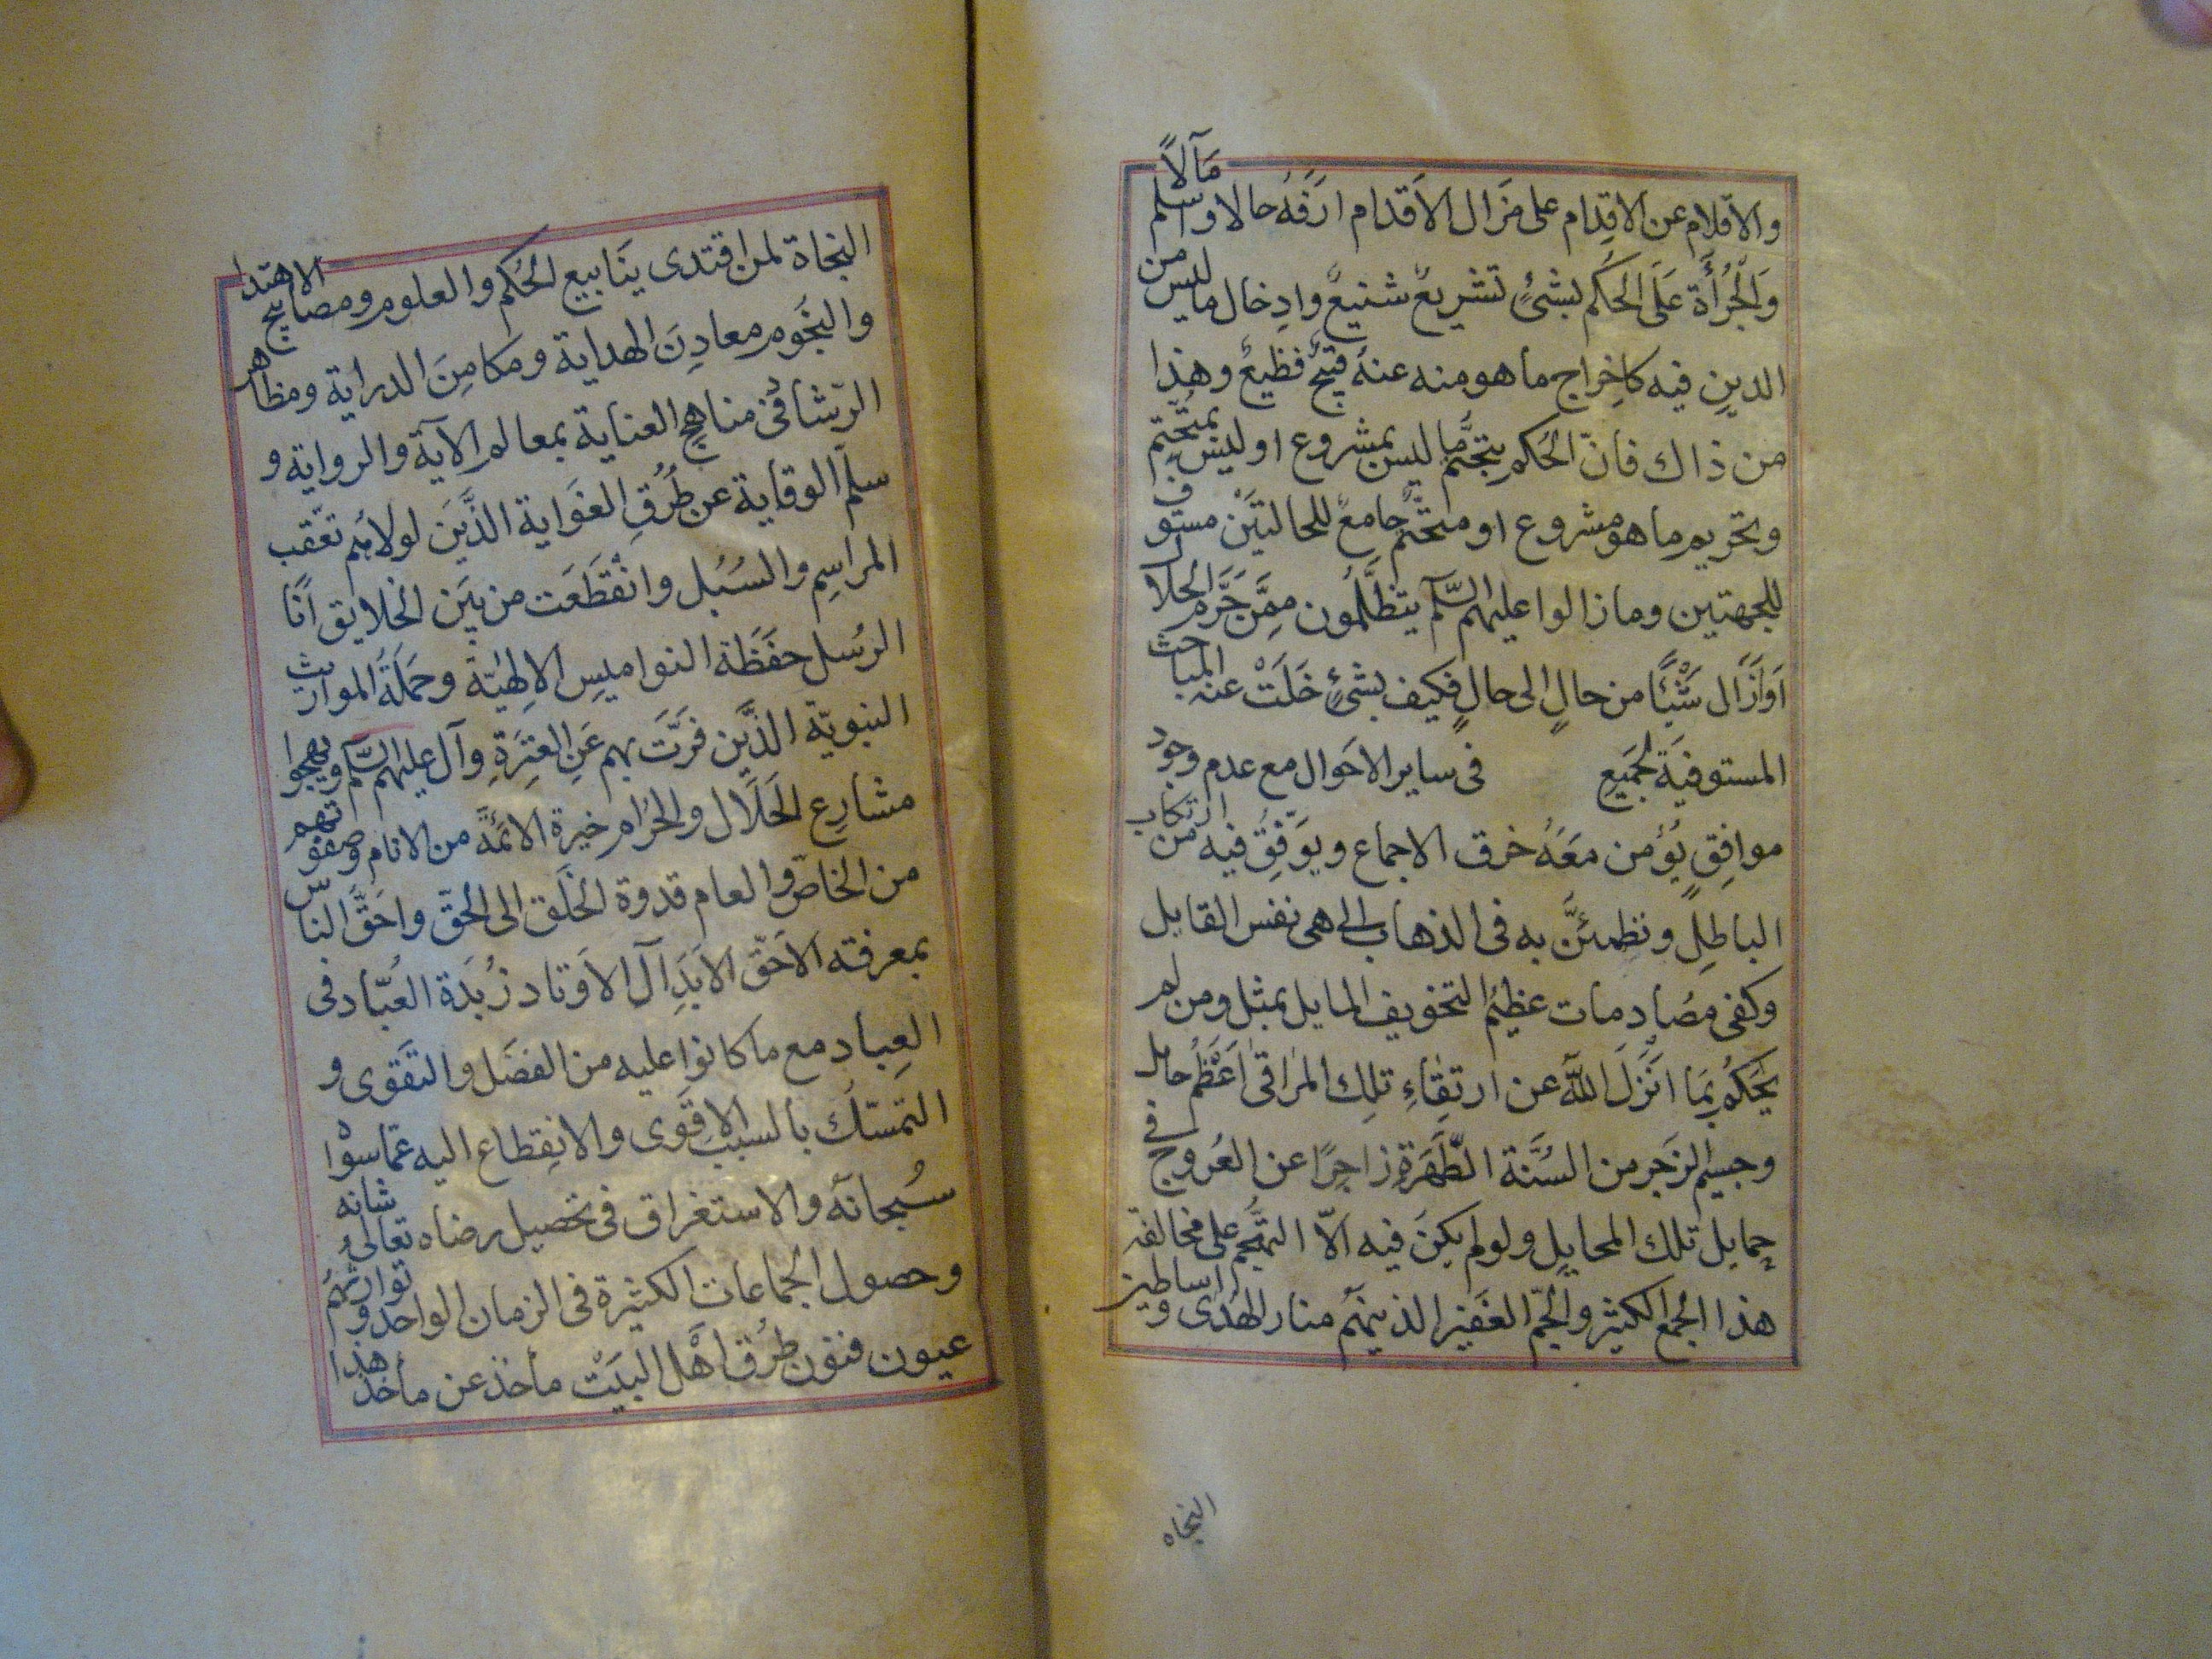 والاقلام عن الاقدام على مزال الاقدام ارفه حالا واسلم مآلاً
وَالْجُرأَة عَلَى الحُكم بشئٍ تشريعٌ شنيعٌ وادخال ما ليس من
الدين فيه كاخراج ما هو منه عنه قبيحٌ فظيعٌ وهذا
من ذاك فانّ الحكم بتحتّم ما ليس بمشروع او ليس بمتحتّم
وبتحريم ما هو مشروع او متحتّم جامعٌ للحالتَيْن مستوف
للجهتين وما زالوا عليهم السّلم يتظلّمون ممّن حَرَّم الحلال
اَوْ اَزال شَيْئًا من حالٍ الى حالٍ فكيف بشئٍ خَلَتْ عنه المباحث
المستوفية لجميع فى ساير الاحوال مع عدم وجود
موافقٍ يُؤمن مَعَهُ خرق الاجماع ويوفق فيه من ارتكاب
الباطل ونطمئنَّ به فى الذهاب الى هى نفس القايل
وكفى مصادمات عظيم التخويف المايل بمثل ومن لم
يَحكُم بِمَا انْزَلَ اللّٰه عن ارتقاءِ تلك المراقى اَعْظَم حايل
وجسيم الزجر من السُنّة المطهّرة زاجرًا عن العُروج فى
حمايل تلك المحايل ولو لم يكن فيه الّا التهجّم على مخالفة
هذا الجمع الكثير والجَمّ الغفير الذينهم منار الهدى و اساطين
النجاه
النجاة لمن اقتدى ينابيع الحُكم والعلوم ومصابيح الاهتدا
والنجوم معادِن الهداية ومكامِنَ الدراية ومظاهر
الرشاد فى مناهج العناية بمعالم الآية والرواية و
سلّم الوقاية عن طُرُقِ الغَواية الذين لولاهم تعقب
المراسِم والسُبُل وانْقَطَعَت من بين الخلايق آثار
الرسُل حفَظَة النواميس الالهيّة وحَمَلَة المواريث
النبويّة الذين قرَّت بهم عَين العِترةِ وآل عليهم السّلم ونهجوا
مشارع الحَلال والحرام خيرة الائمّة من الانام وصفوتهم
من الخاصّ والعام قدوة الخَلق الى الحقّ واحَقَّ الناس
بمعرفته الاحَقّ الابدال الاوتاد زُبدَة العُبّاد فى
العباد مع ما كانوا عليه من الفضل والتقوى و
التمسّك بالسبب الاقوى والانقطاع اليه عمّا سوا
سُبحانه والاستغراق فى تحصيل رضاه تعالى شانه
وحصول الجماعات الكثيرة فى الزمان الواحد وتوارثهم
عيون فنون طُرُق اَهْل البيت مأخذ عن مأخذ هذا